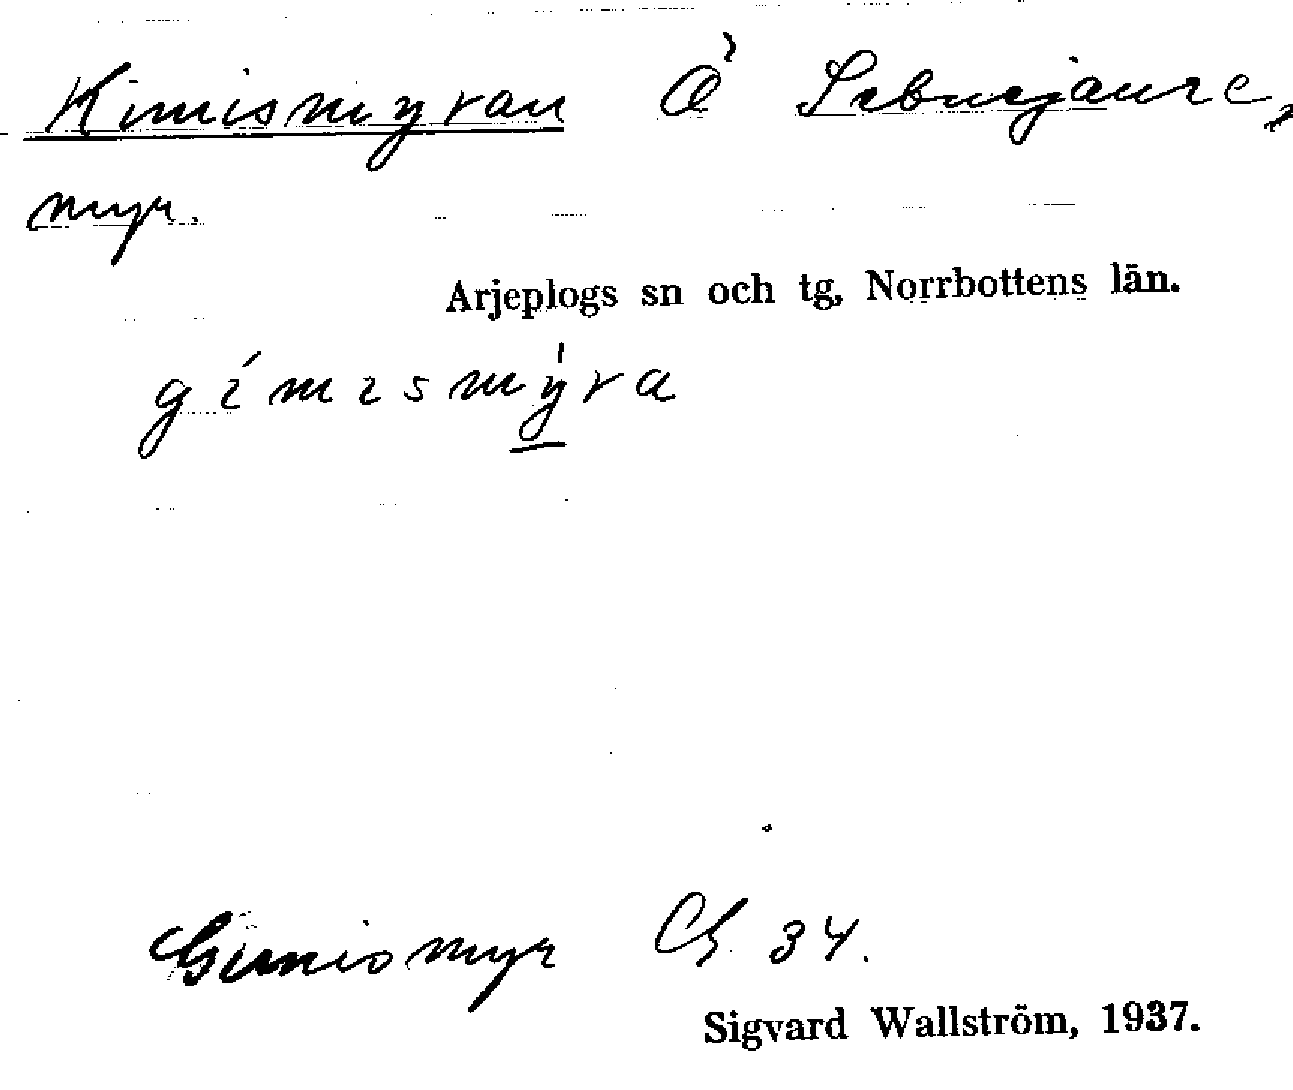 Kimismyran Ö
myr.
Arjeplogs sn och tg, Norrbottens län.
gímismýra
Gimismyr 34.
Sigvard Wallström, 1937.